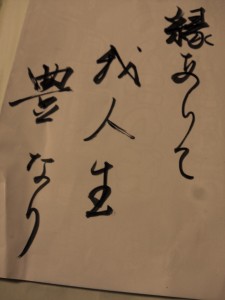 縁ありて
我人生
豊なり